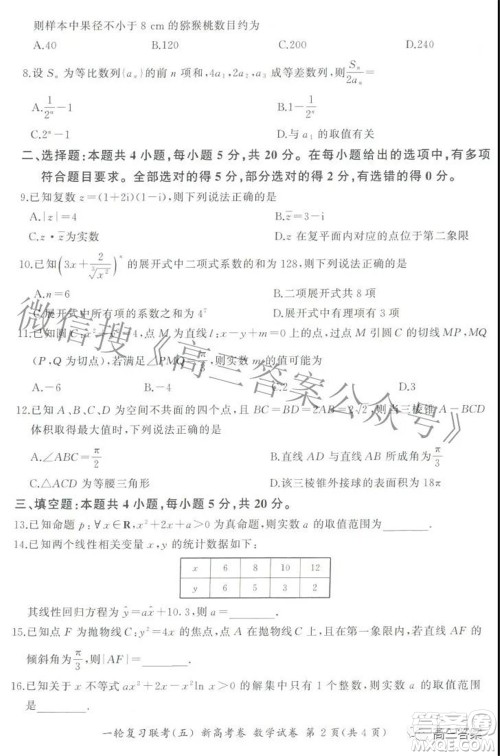 则样本中果径不小于 8 cm 的猕猴桃数目约为
A.40 B.120 C.200 D.240
8.设 Sₙ 为等比数列{aₙ}的前 n 项和,4a₁,2a₂,a₃ 成等差数列,则 Sₙ/2aₙ =
A.1/2ⁿ −1 B.1− 1/2ⁿ
C.2ⁿ−1 D.与 a₁ 的取值有关
二、选择题:本题共 4 小题,每小题 5 分,共 20 分。在每小题给出的选项中,有多项
符合题目要求。全部选对的得5分,部分选对的得 2 分,有选错的得 0 分。
9.已知复数 z=(1+2i)(1−i),则下列说法正确的是
A.|z|=4 B.z̄=3−i
C.z·z̄ 为实数 D.z̄ 在复平面内对应的点位于第二象限
10.已知(3x+ )ⁿ 的展开式中二项式系数的和为 128,则下列说法正确的是
A.n=6 B.二项展开式共 8 项
展开式中所有项的系数之和为 4⁷ D.展开式中有理项有 3 项
11.已知圆 ,点 M 为直线 l:x−y−4=0 上的点,过点 M 引圆 C 的切线 MP,MQ
(P,Q 为切点),若满足∠PMQ= ,则实数 m 的值可能为
A.−6 B.4 C.2 D.3
12.已知 A,B,C,D 为空间不共面的四个点,且 BC=BD= ,则当三棱锥 A−BCD
体积取得最大值时,下列说法正确的是
A.∠ABC=π/2 B.直线 AD 与直线 所成角为π/3
为等腰三角形 D.该三棱锥外接球体积为 18π
三、填空题:本题共 4 小题,每小题 5 分,共 20 分。
13.已知命题 p:∀x∈R,x²+2x+a>0 为真命题,则实数 a 的取值范围为________.
14.已知两个线性相关变量 x,y 的统计数据如下:
x 6 8 10 12
y 6 5 3 2
其线性回归方程为 ŷ=âx+10.3,则实数 a 的取值范围为
________.
15.已知点 F 为抛物线 C:y²=4x 的焦点,点 A 在抛物线上,且在第一象限内,若直线 AF 的
倾斜角为π/3,则|AF|=________.
16.已知关于 x 不等式 ax²+2x−x²ln x>0 的解集中只有 1 个整数,则实数 a 的取值范围为
________.
一轮复习联考(五) 新高考卷 数学试卷 第 2 页(共 4 页)
微信搜《高三答案公众号》
高三答案